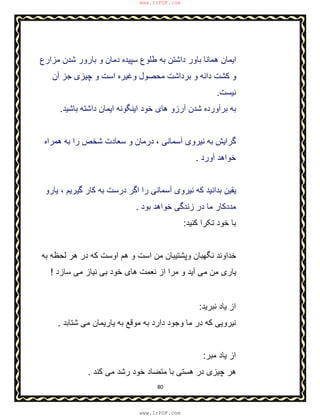 www.IrPDF.com
ایمان همانا باور داشتن به طلوع سپیده دمان و بارور شدن مزارع
و کشت دانه و برداشت محصول وغیره است و چیزی جز آن
نیست.
به برآورده شدن آرزو های خود اینگونه ایمان داشته باشید.
گرایش به نیروی آسمانی ، درمان و سعادت شخص را به همراه
خواهد آورد .
یقین بدانید که نیروی آسمانی را اگر درست به کار گیریم ، یارو
مددکار ما در زندگی خواهد بود .
با خود تکرا کنید:
خداوند نگهبان وپشتیبان من است و هم اوست که در هر لحظه به
یاری من می آید و مرا از نعمت های خود بی نیاز می سازد !
از یاد نبرید:
نیرویی که در ما وجود دارد به موقع به یاریمان می شتابد .
از یاد مبر:
هر چیزی در هستی با متضاد خود رشد می کند .
80
www.IrPDF.com